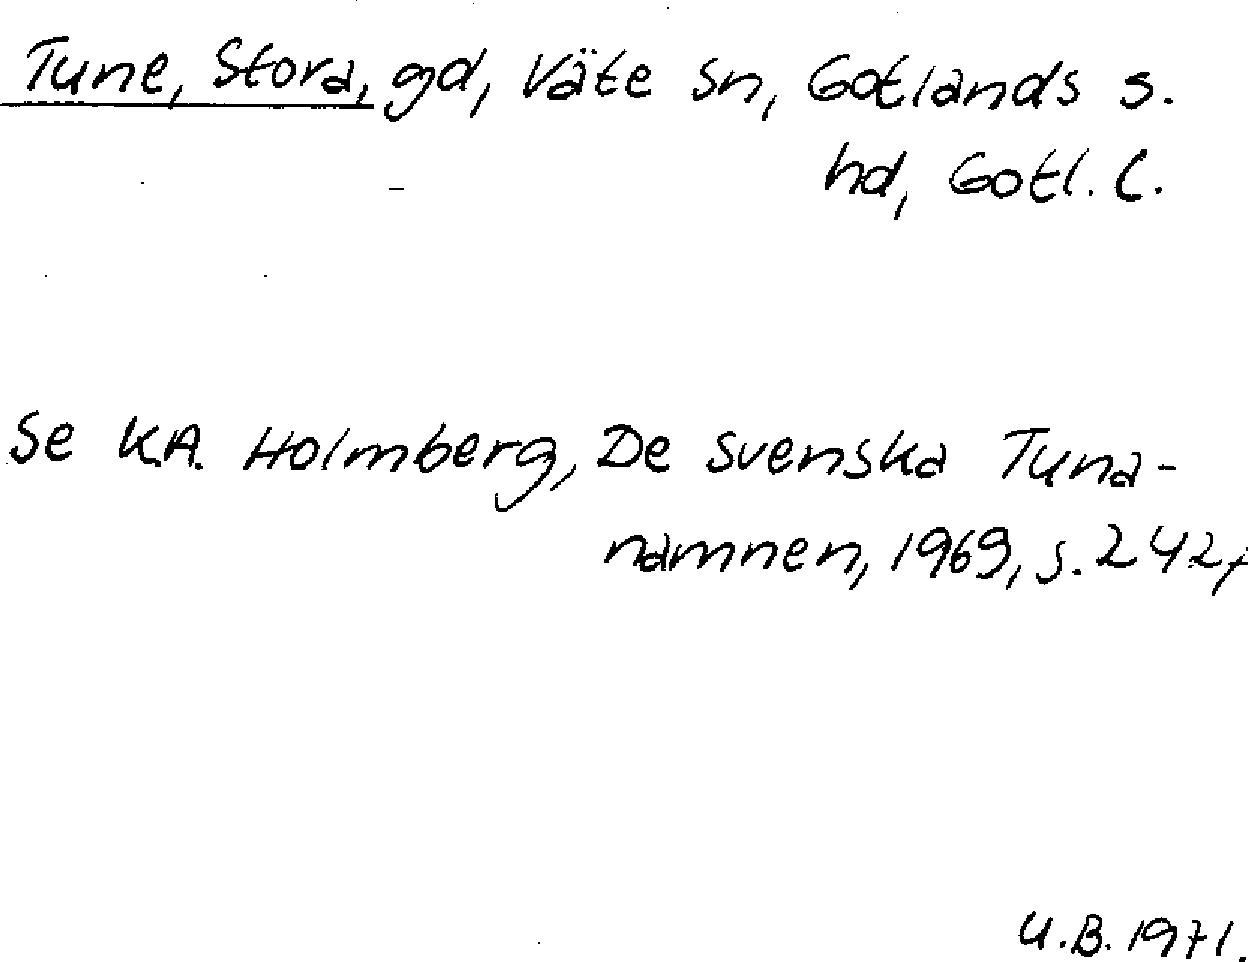 Tune, Stora, gd, Väte sn, Gotlands s.
hd, Gotl. l.
Se K.A. Holmberg, De svenska Tuna-
namnen, 1969, s. 242,
U.B. 1971.